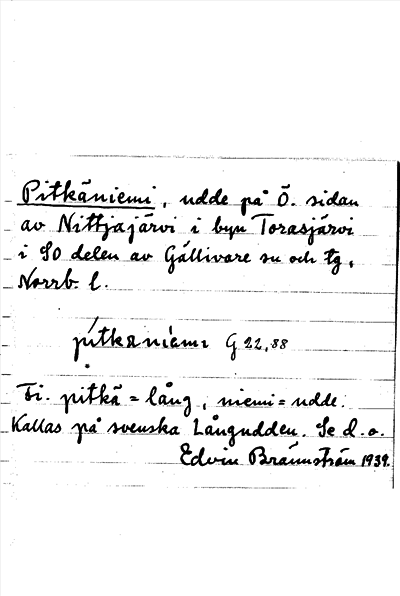 Pitkäniemi, udde på Ö. sidan
av Nittjajärvi i byn Torasjärvi
i SO delen av Gällivare sn och tg,
Norrb. l.
G 22,88
Fi. pitkä = lång, niemi = udde.
Kallas på svenska Långudden. Se d. o.
Edvin Brännström 1939.